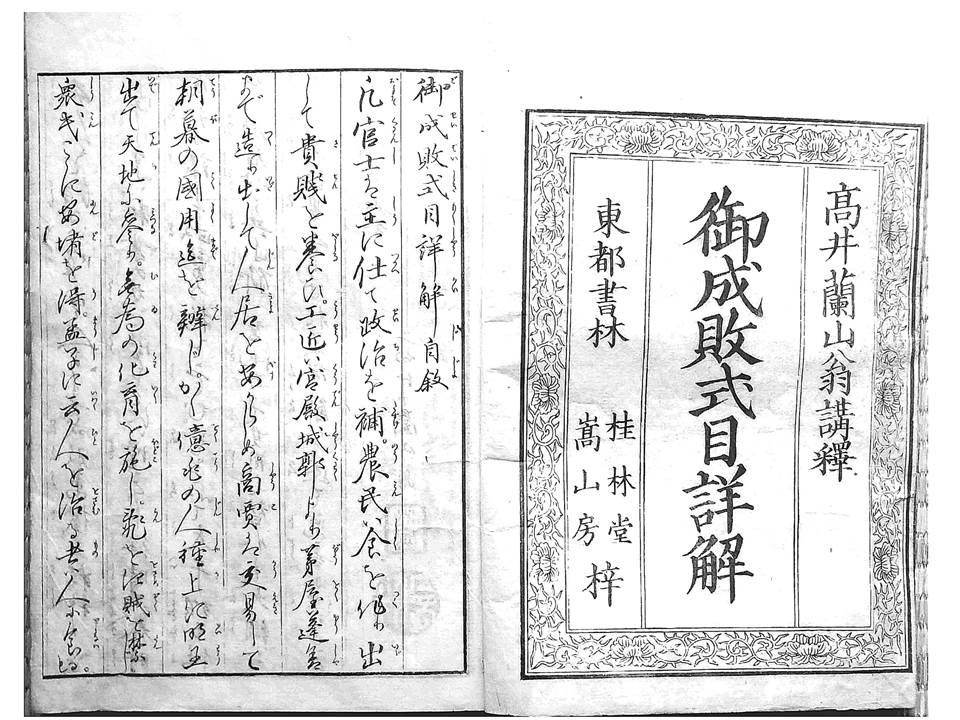 高井蘭山翁講釋
御成敗式目詳解
東都書林
桂林堂
嵩山房
梓
御成敗式目詳解自敘
凡官士ハ主に仕て政治を補。農民ハ食を作り出
して貴賤を養ひ。工匠ハ宮殿城郭より茅屋蓬舎
まで造り出して人居を安からしめ。商賈ハ交易して
朝暮の國用を辨ず。かく億兆の人種上に明王
出て天地に参り。無為の化育を施し。乱を
衆民こゝに安堵を得。孟子に云人を治る者ハ人に食はる。